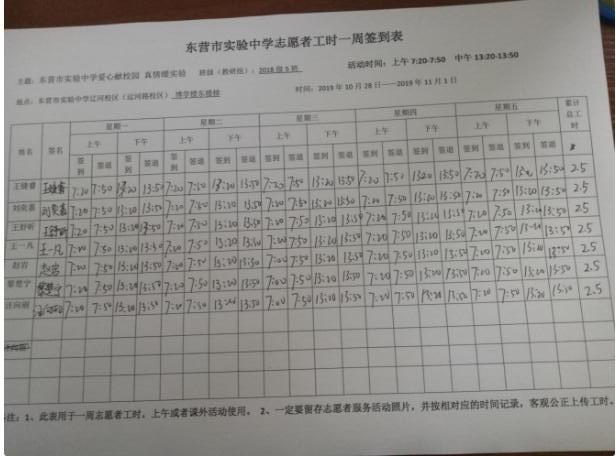 东营市实验中学志愿者工时一周签到表
活动时间：上午 7:20-7:50 中午 13:20-13:50
主题：东营市实验中学爱心献校园 真情暖实验 班级（教研组）：2018级5班
时间：2019年10月28日——2019年11月1日
地点：东营市实验中学辽河校区（运河路校区） 博学楼东楼梯
姓名 签名 星期一 星期二 星期三 星期四 星期五 累计总工时
上午 下午 上午 下午 上午 下午 上午 下午 上午 下午
签到 签退 签到 签退 签到 签退 签到 签退 签到 签退 签到 签退 签到 签退 签到 签退 签到 签退 签到 签退
7:20 7:50 13:20 13:50 7:20 7:50 13:20 13:50 7:20 7:50 13:20 13:50 7:20 7:50 13:20 13:50 7:20 7:50 13:50 2.5
刘奕嘉 刘奕嘉 7:20 7:50 13:20 13:50 7:20 7:50 13:20 13:50 7:20 7:50 13:20 13:50 7:20 7:50 13:20 13:50 7:20 7:50 13:20 13:50 2.5
王舒昕 7:20 7:50 13:20 13:50 7:20 7:50 13:20 13:50 7:20 7:50 13:20 13:50 7:20 7:50 13:20 7:20 7:50 13:20 13:50 2.5
王一凡 王一凡 7:20 7:50 13:20 13:50 7:20 7:50 13:20 13:50 7:20 7:50 13:20 13:50 7:20 7:50 13:20 13:50 7:20 7:50 13:20 13:50 2.5
赵岩 赵岩 7:20 7:50 13:20 13:50 7:20 7:50 13:20 13:50 7:00 7:50 13:20 13:50 7:20 7:50 13:20 13:50 7:20 7:50 13:20 13:50 2.5
黎楚宁 黎楚宁 7:20 7:50 13:20 13:50 7:20 7:50 13:20 13:50 7:00 7:50 13:20 13:50 7:20 7:50 13:20 13:50 7:20 7:50 13:20 13:50 2.5
7:20 7:50 13:20 13:50 7:20 7:50 13:20 13:50 7:00 7:50 13:20 13:50 7:20 7:50 13:20 13:50 7:20 7:50 13:20 13:50 2.5
注：1、此表用于一周志愿者工时，上午或者课外活动使用。 2、一定要留存志愿者服务活动照片，并按相对应的时间记录，客观公正上传工时。